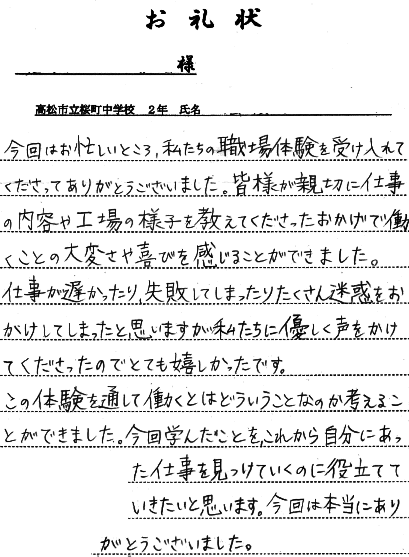 お礼状
様
高松市立桜町中学校 2年 氏名
今回はお忙しいところ、私たちの職場体験を受け入れて
くださってありがとうございました。皆様が親切に仕事
の内容や工場の様子を教えてくださったおかげで働
くことの大変さや喜びを感じることができました。
仕事が遅かったり、失敗してしまったりたくさん迷惑をお
かけしてしまったと思いますが私たちに優しく声をかけ
てくださったのでとても嬉しかったです。
この体験を通して働くとはどういうことなのか考えるこ
とができました。今回学んだことを、これから自分にあっ
た仕事を見つけていくのに役立てて
いきたいと思います。今回は本当にあり
がとうございました。